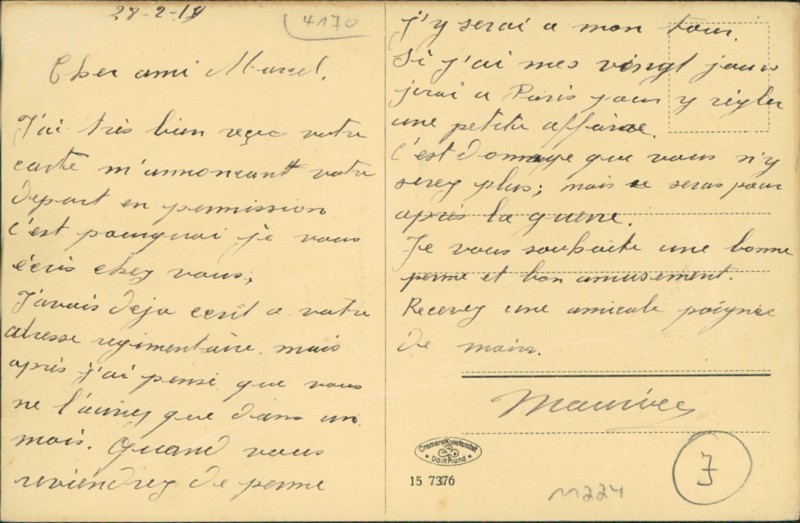 28-2-19
4170
Cher ami Marcel.
J'ai très bien reçu votre
carte m'annoncant votre
depart en permission
c'est pourquoi je vous
écris chez vous;
J'avais deja ecrit a votre
adresse regimentaire mais
après j'ai pensé que vous
ne l'auriez que dans un
mois. Quand vous
reviendrez de perme
j'y serai a mon tour.
Si j'ai mes vingt jours
jirai a Paris pour y régler
une petite affaire.
C'est domage que vous n'y
serez plus; mais ce seras pour
après la guerre.
Je vous souhaite une bonne
perme et bon amusement.
Recevez une amicale poignée
de mains.
Maurice
Cramers Kunstanstalt
Dortmund
15 7376
M224
J